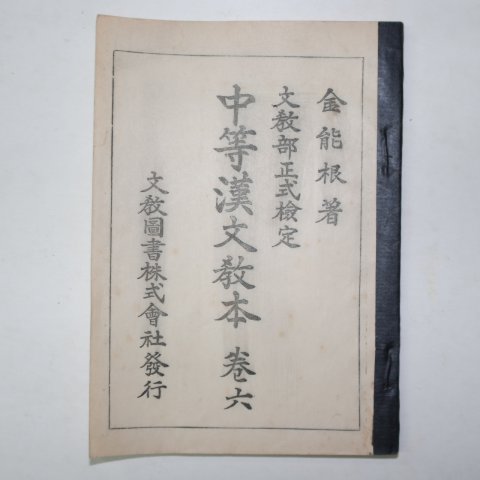 金能根著
文敎部正式檢定
中等漢文敎本 卷六
文敎圖書株式會社發行